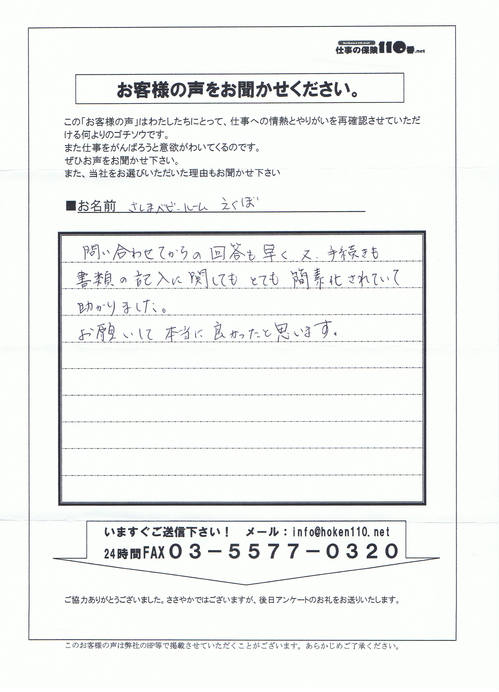 仕事の保険110番.net
お客様の声をお聞かせください。
この「お客様の声」はわたしたちにとって、仕事への情熱とやりがいを再確認させていただ
ける何よりのゴチソウです。
また仕事をがんばろうと意欲がわいてくるのです。
ぜひお声をお聞かせ下さい。
また、当社をお選びいただいた理由もお聞かせ下さい
■お名前 さしまベビールーム えくぼ
問い合わせてからの回答も早く 又、手続きも
書類の記入に関しても とても 簡素化されていて
助かりました。
お願いして 本当に良かったと思います。
いますぐご送信下さい! メール:info@hoken110.net
24時間FAX03-5577-0320
ご協力ありがとうございました。ささやかではございますが、後日アンケートのお礼をお送りいたします。
このお客様の声は弊社のHP等で掲載させていただくことがございます。あらかじめご了承ください。